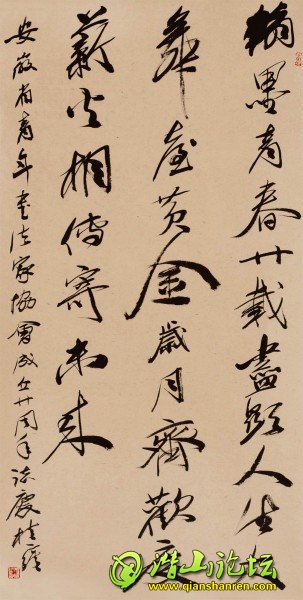 翰墨青春廿載盡顯人生
舞臺黄金歲月齊歡度
薪火相傳寄未来
安徽省青年書法家協會成立廿周年誌慶桂
潜山论坛
www.qianshanren.com